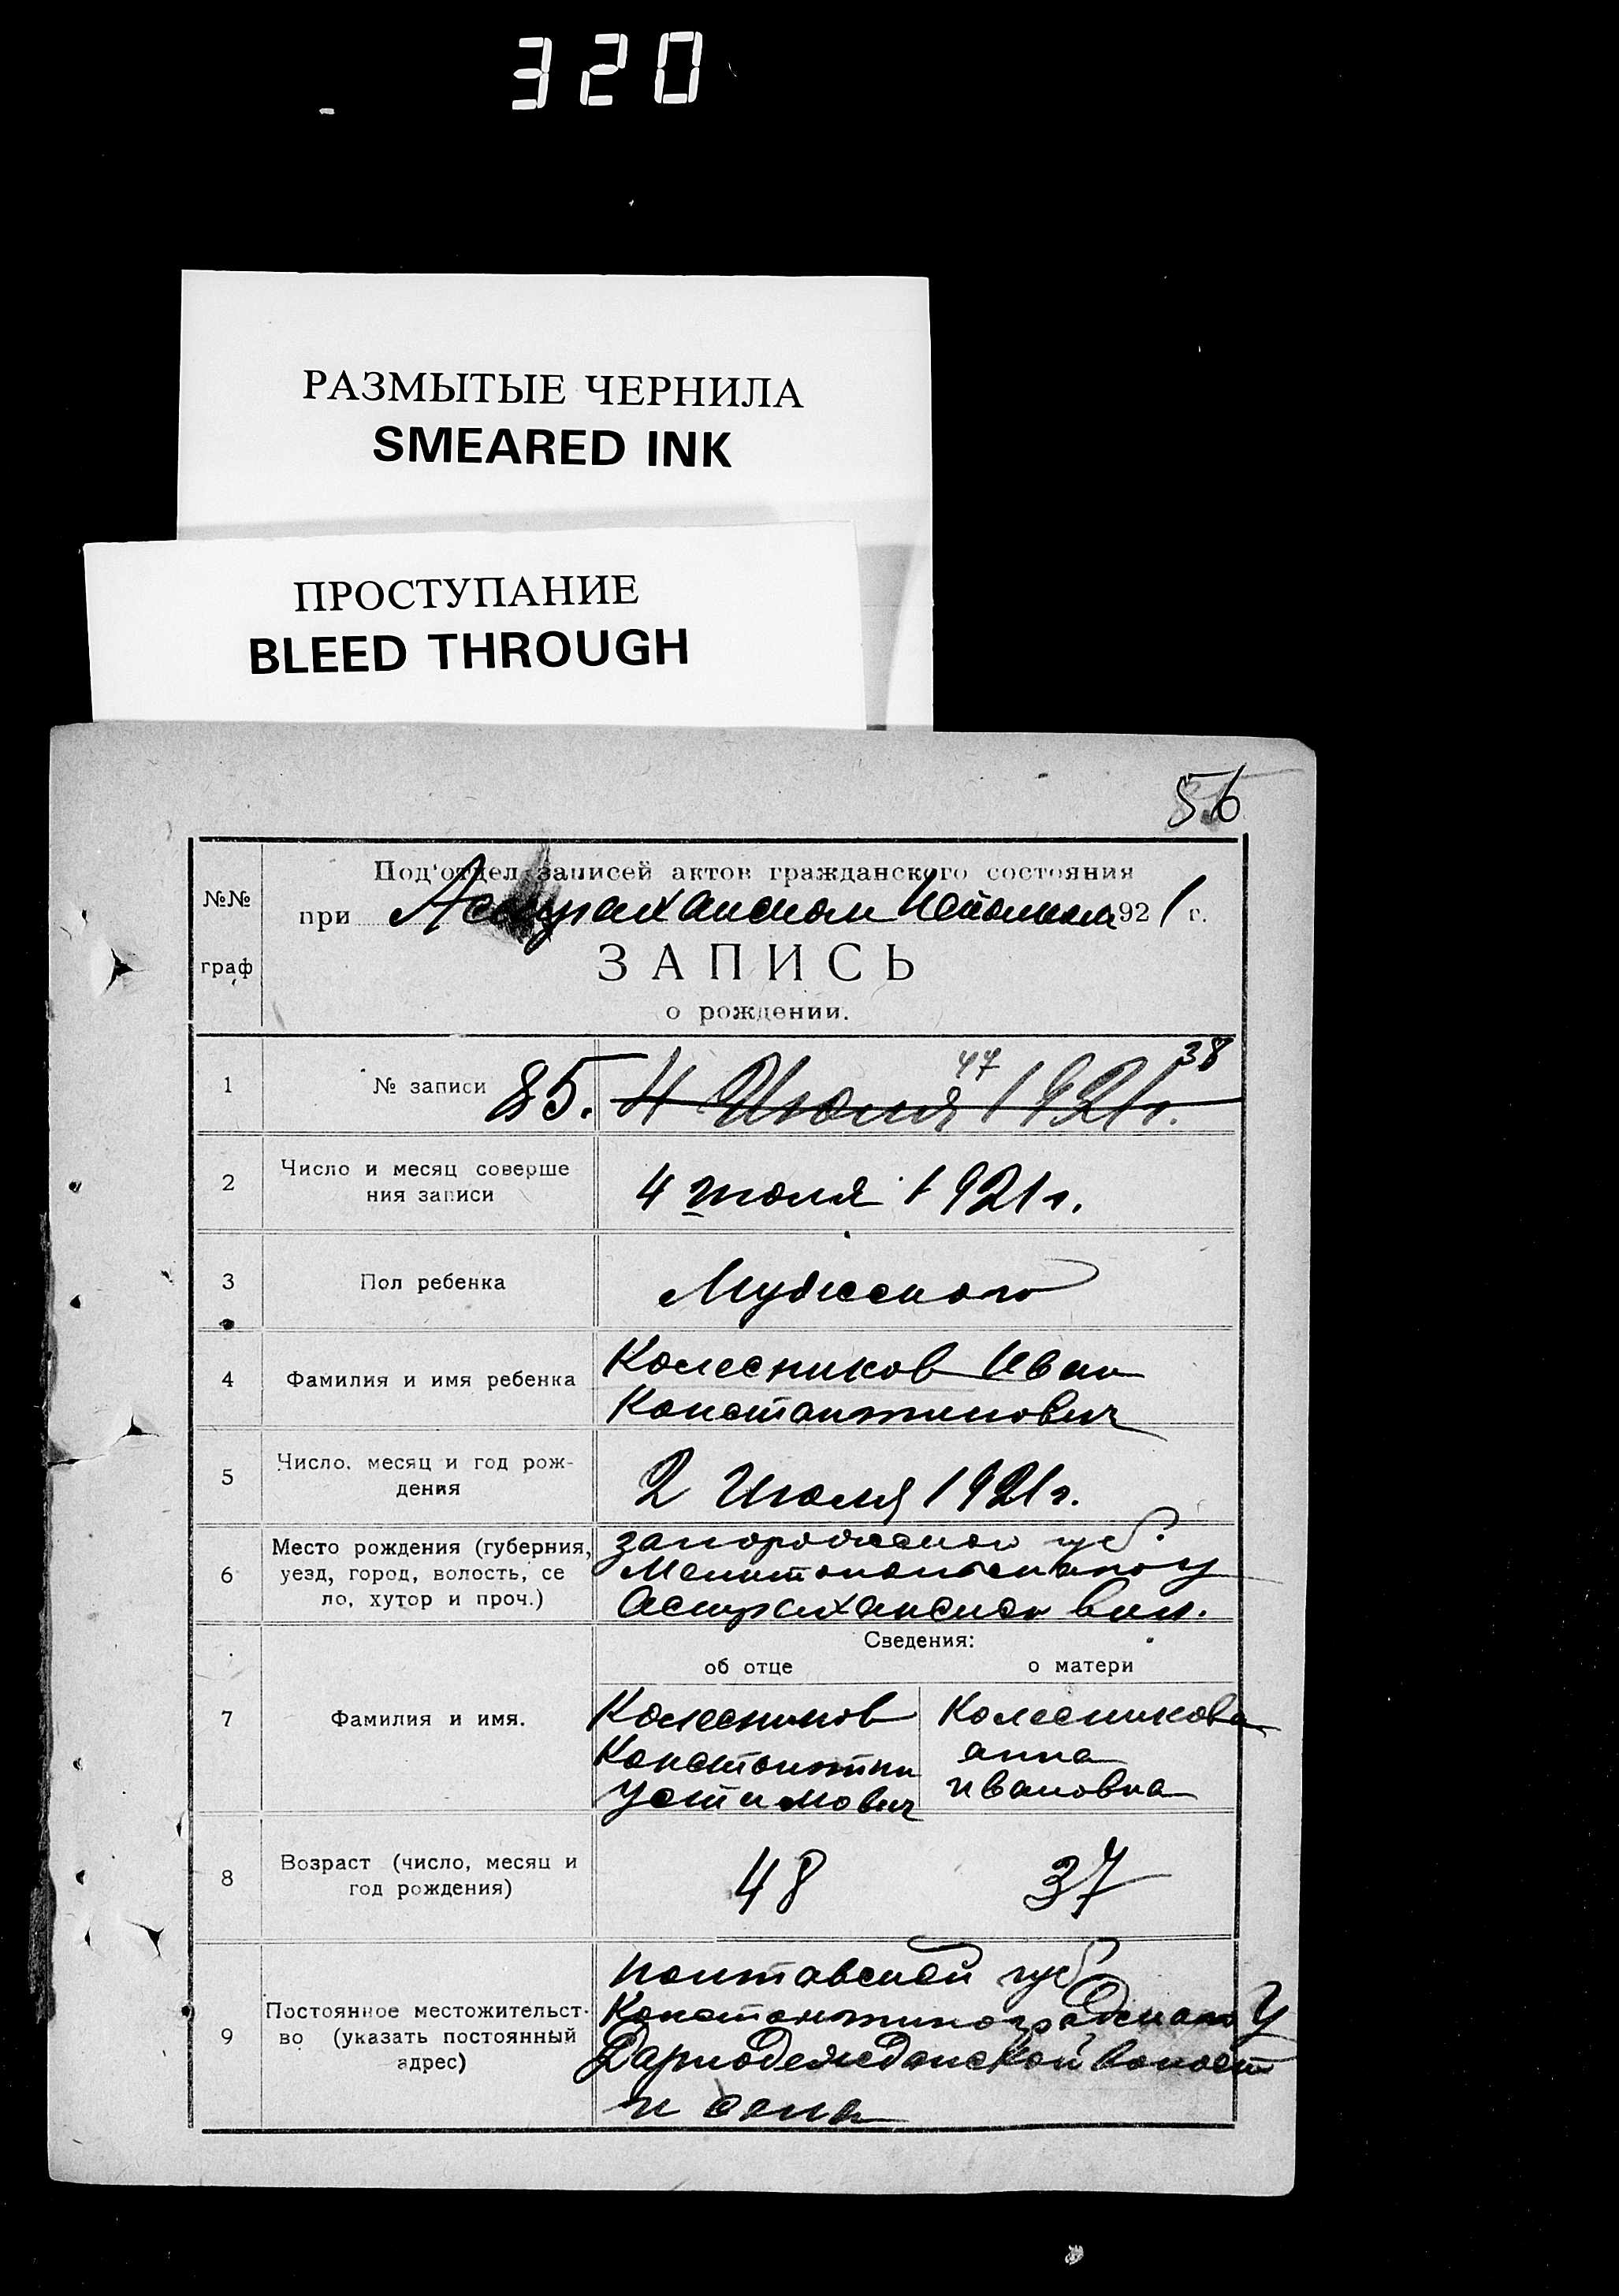 320
РАЗМЫТЫЕ ЧЕРНИЛА
SMEARED INK
ПРОСТУПАНИЕ
BLEED THROUGH
56
№№ граф
Под'отдел записей актов гражданского состояния
при Астраханском 1921 г.
ЗАПИСЬ
о рождении.
47 38
1 № записи 85. 4 Июля 1921 г.
2 Число и месяц соверше
ния записи
4 июля 1921 г.
3 Пол ребенка Мужского
4 Фамилия и имя ребенка
Колесников Иван
Константинович
5 Число, месяц и год рож-
дения
2 Июля 1921 г.
6 Место рождения (губерния,
уезд, город, волость, се
ло, хутор и проч.)
запорожской губ.
Мелитопольского у
Астраханской вол.
Сведения:
об отце о матери
7 Фамилия и имя.
Колесников Колесникова
Константин анна
Устимович ивановна
8 Возраст (число, месяц и
год рождения)
48 37
9 Постоянное местожительст-
во (указать постоянный
адрес)
полтавской губ
Константиноградского У
волост
и села